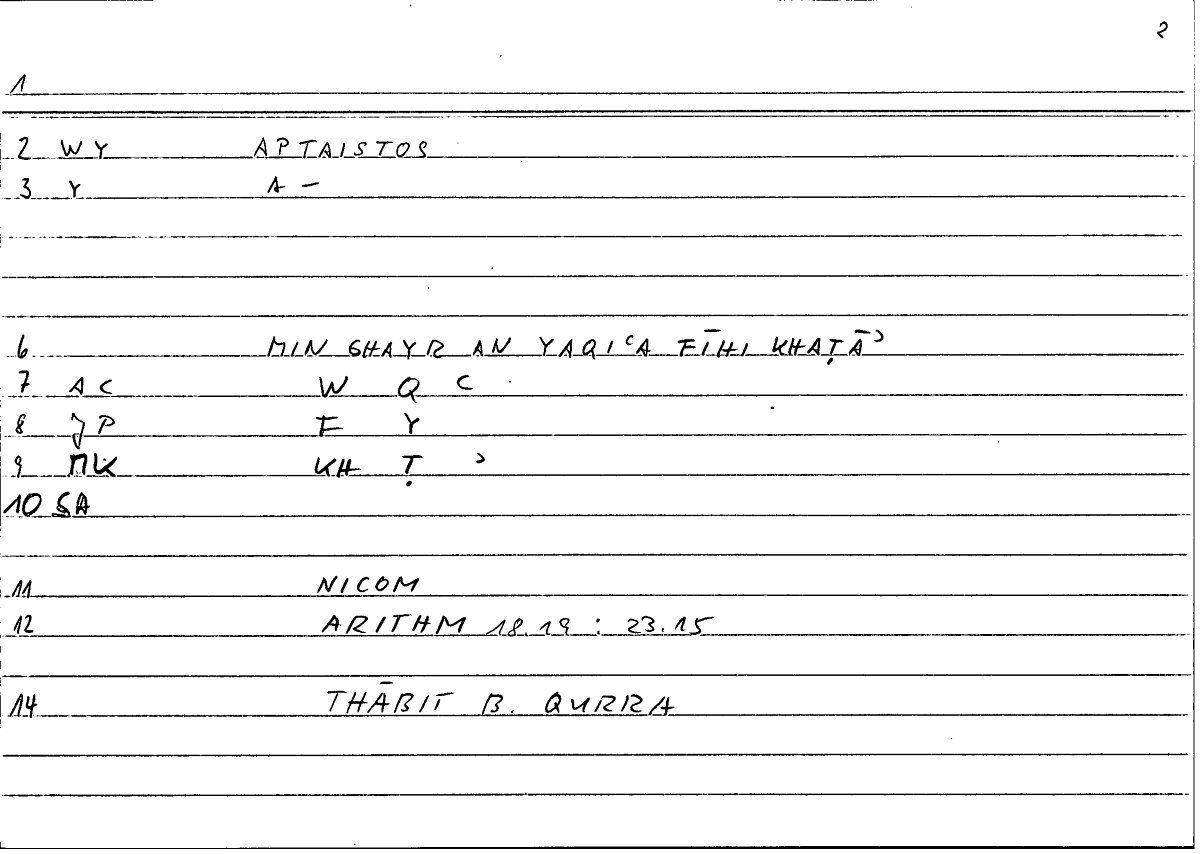 2
1
2 WY APTAISTOS
3 Y A –
6 MIN GHAYR AN YAQIʿA FĪHI KHAṬĀʾ
7 AC W Q ʿ
8 JP F Y
9 MK KH Ṭ ʾ
10 SA
11 NICOM
12 ARITHM 18.19 : 23.15
14 THĀBIT B. QURRA